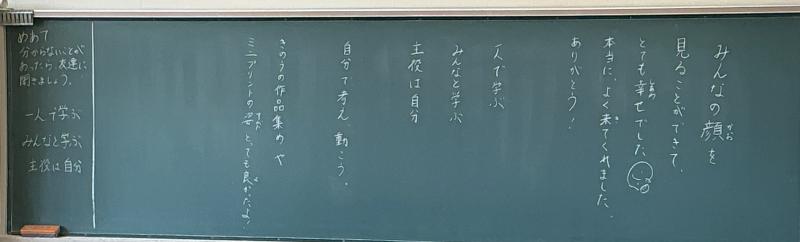 みんなの顔を
かお
見ることができて、
とても幸せでした。
しあわ
本当に、よく来てくれました。
き
ありがとう!
一人で学ぶ
みんなと学ぶ
主役は自分
自分で考え、動こう。
きのうの作品集めや
ミニプリントの姿、とっても良かったよ!
すがた
よ
めあて
分からないことが
あったら友達に
聞きましょう。
一人で学ぶ
みんなと学ぶ
主役は自分